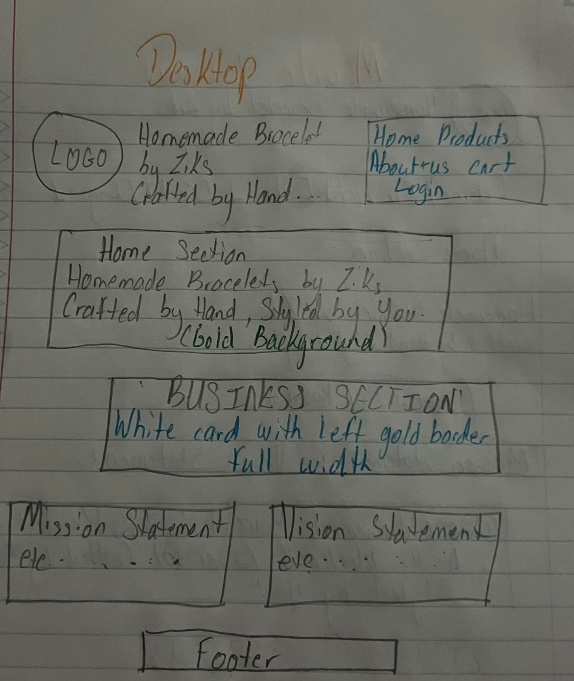 Desktop
LOGO
Homemade Bracelet
by Ziks
Crafted by Hand...
Home Products
About us Cart
Login
Home Section
Homemade Bracelets by Ziks
Crafted by Hand, Styled by You.
(Gold Background)
BUSINESS SECTION
White card with left gold border
full width
Mission Statement
etc. . . . . .
Vision Statement
etc. . . .
Footer